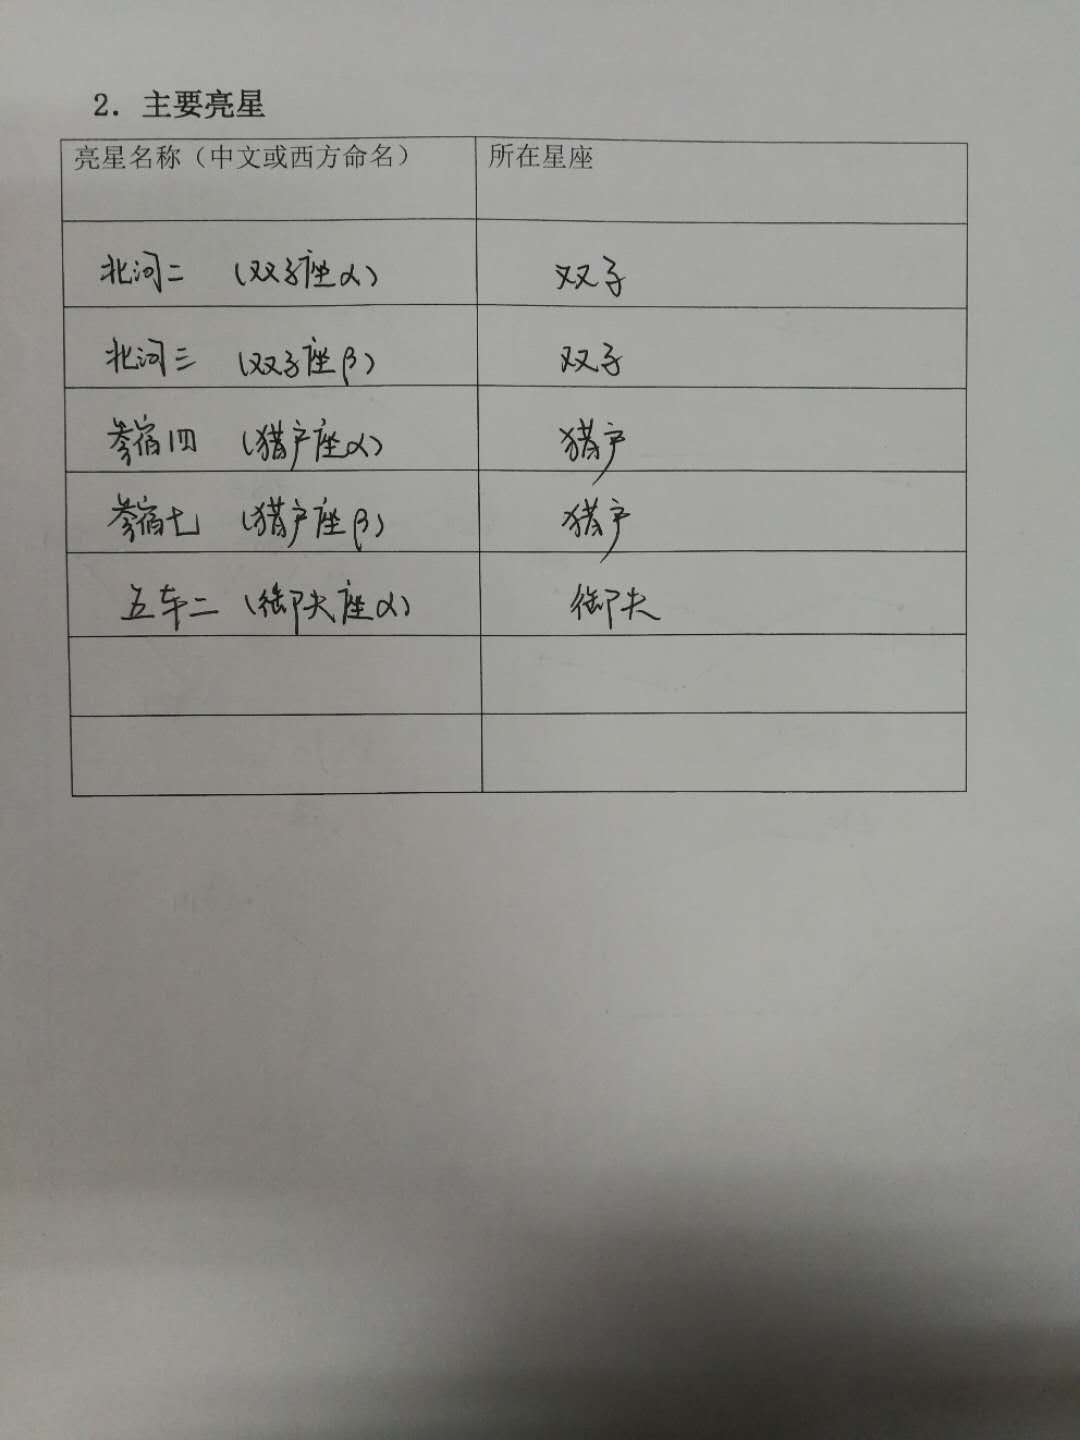 2. 主要亮星
亮星名称（中文或西方命名） 所在星座
北河二 (双子座α) 双子
北河三 (双子座β) 双子
参宿四 (猎户座α) 猎户
参宿七 (猎户座β) 猎户
五车二 (御夫座α) 御夫